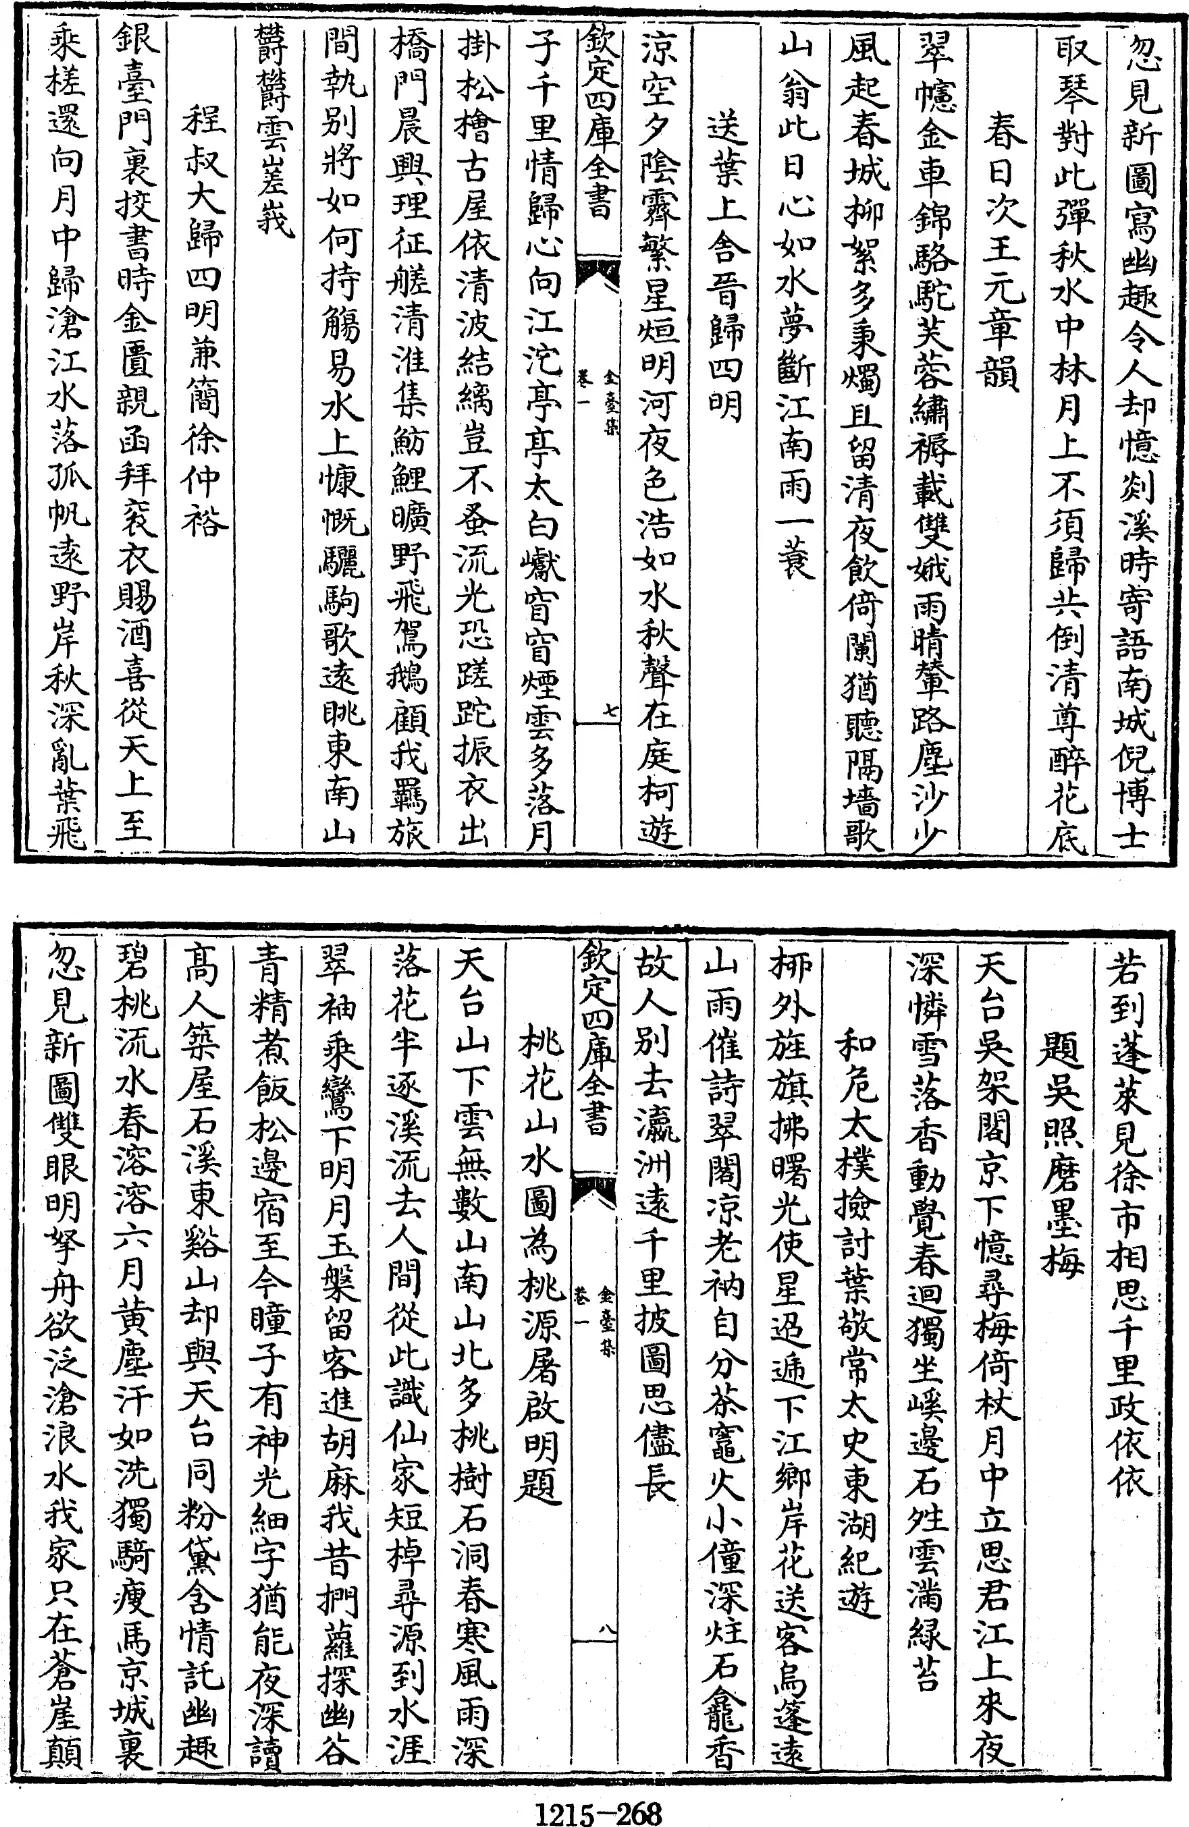 忽見新圖寫幽趣令人却憶剡溪時寄語南城倪博士
取琴對此彈秋水中林月上不須歸共倒清尊醉花底
春日次王元章韻
翠幰金車錦駱駝芙蓉繡褥載雙娥雨晴輦路塵沙少
風起春城柳絮多秉燭且留清夜飲倚闌猶聽隔墻歌
山翁此日心如水夢斷江南雨一蓑
送葉上舍晋歸四明
涼空夕陰霽繁星烜明河夜色浩如水秋聲在庭柯遊
欽定四庫全書
金臺集
卷一
七
子千里情歸心向江沱亭亭太白巘窅窅煙雲多落月
掛松檜古屋依清波結縭豈不蚤流光恐蹉跎振衣出
橋門晨興理征艖清淮集魴鯉曠野飛鴐鵝顧我羈旅
間執别將如何持觴易水上慷慨驪駒歌遠眺東南山
欝欝雲嵳峩
程叔大歸四明兼簡徐仲裕
銀臺門裏挍書時金匱親函拜衮衣賜酒喜從天上至
乘槎還向月中歸滄江水落孤帆遠野岸秋深亂葉飛
若到蓬萊見徐市相思千里政依依
題吳照磨墨梅
天台吳架閣京下憶尋梅倚杖月中立思君江上來夜
深憐雪落香動覺春迴獨坐嵠邊石䏁雲滿緑苔
和危太樸撿討葉敬常太史東湖紀遊
桞外旌旗拂曙光使星迢遞下江鄉岸花送客烏蓬遠
山雨催詩翠閣凉老衲自分茶竈火小僮深炷石龕香
故人别去瀛洲遠千里披圖思儘長
欽定四庫全書
金臺集
卷一
八
桃花山水圖為桃源屠啟明題
天台山下雲無數山南山北多桃樹石洞春寒風雨深
落花半逐溪流去人間從此識仙家短棹尋源到水涯
翠袖乘鸞下明月玉槃留客進胡麻我昔捫蘿探幽谷
青精煮飯松邊宿至今瞳子有神光細字猶能夜深讀
高人築屋石溪東谿山却與天台同粉黛含情託幽趣
碧桃流水春溶溶六月黄塵汗如洗獨騎瘦馬京城裏
忽見新圖雙眼明拏舟欲泛滄浪水我家只在蒼崖顛
1215-268